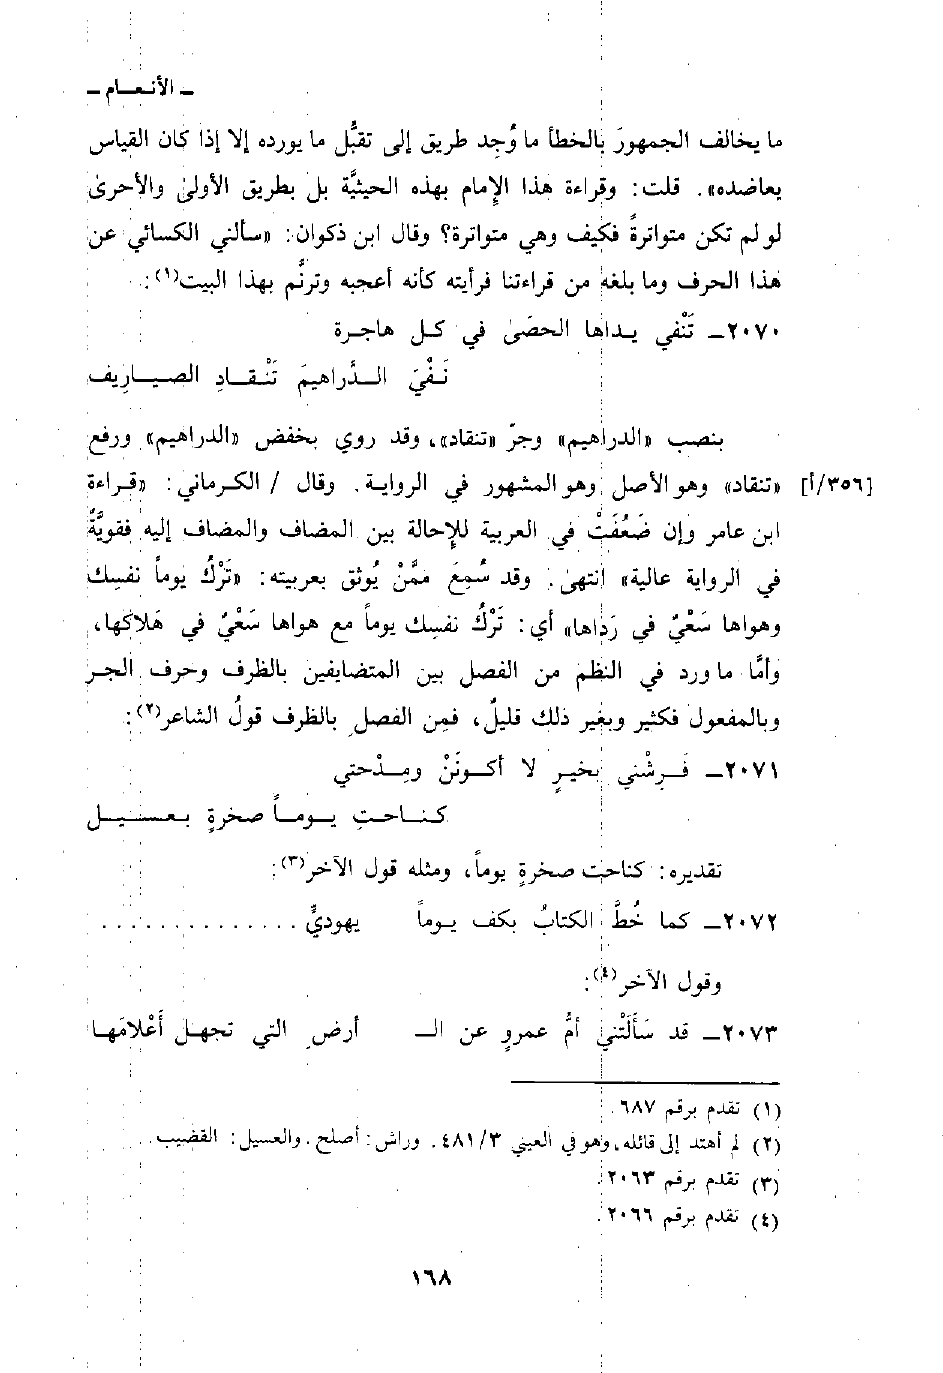 ـ الأنعـام ـ
ما يخالف الجمهورَ بالخطأ ما وُجد طريق إلى تقبُّل ما يورده إلا إذا كان القياس
يعاضده». قلت: وقراءة هذا الإمام بهذه الحيثيَّة بل بطريق الأولىٰ والأحرىٰ
لو لم تكن متواترةً فكيف وهي متواترة؟ وقال ابن ذكوان: «سألني الكسائي عن
هذا الحرف وما بلغه من قراءتنا فرأيته كأنه أعجبه وترنَّم بهذا البيت(١):
٢٠٧٠ـ تَنْفي يداها الحصَىٰ في كل هاجرة
نَفْيَ الدَّراهيمَ تَنْقادِ الصياريف
بنصب «الدراهيم» وجرّ «تنقاد»، وقد روي بخفض «الدراهيم» ورفع
[٣٥٦/أ] «تنقاد» وهو الأصل وهو المشهور في الرواية. وقال / الكرماني: «قراءة
ابن عامر وإن ضَعُفَتْ في العربية للإحالة بين المضاف والمضاف إليه فقويَّةٌ
في الرواية عالية» انتهىٰ. وقد سُمِعَ ممَّنْ يُوثق بعربيته: «تَرْكُ يوماً نفسِك
وهواها سَعْيٌ في رَداها» أي: تَرْكُ نفسِك يوماً مع هواها سَعْيٌ في هَلاكها،
وأمَّا ما ورد في النظم من الفصل بين المتضايفين بالظرف وحرف الجر
وبالمفعول فكثير وبغير ذلك قليلٌ، فمِن الفصل بالظرف قولُ الشاعر(٢):
٢٠٧١ـ فَرِشْني بخيرٍ لا أكونَنْ ومِدْحتي
كناحتِ يوماً صخرةٍ بعسيل
تقديره: كناحت صخرةٍ يوماً، ومثله قول الآخر(٣):
٢٠٧٢ـ كما خُطَّ الكتابُ بكف يوماً يهوديٍّ . . . . . . . . . . . . . .
وقول الآخر(٤):
٢٠٧٣ـ قد سَأَلَتْني أمُّ عمروٍ عن الـ أرضِ التي تجهل أَعْلامَها
(١) تقدم برقم ٦٨٧.
(٢) لم أهتد إلى قائله، وهو في العيني ٤٨١/٣. وراش: أصلح. والعسيل: القضيب.
(٣) تقدم برقم ٢٠٦٣.
(٤) تقدم برقم ٢٠٦٦.
١٦٨